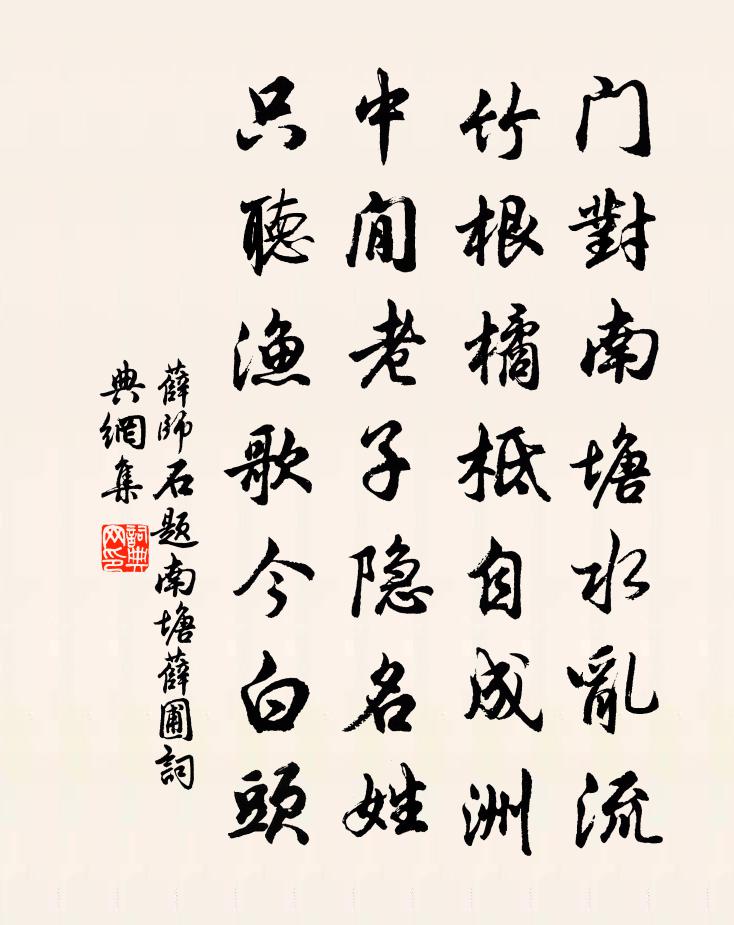 门對南塘水亂流
竹根橘柢自成洲
中间老子隐名姓
只聴渔歌今白頭
薛師石题南塘薛圃詞
典網集
詞典
网印